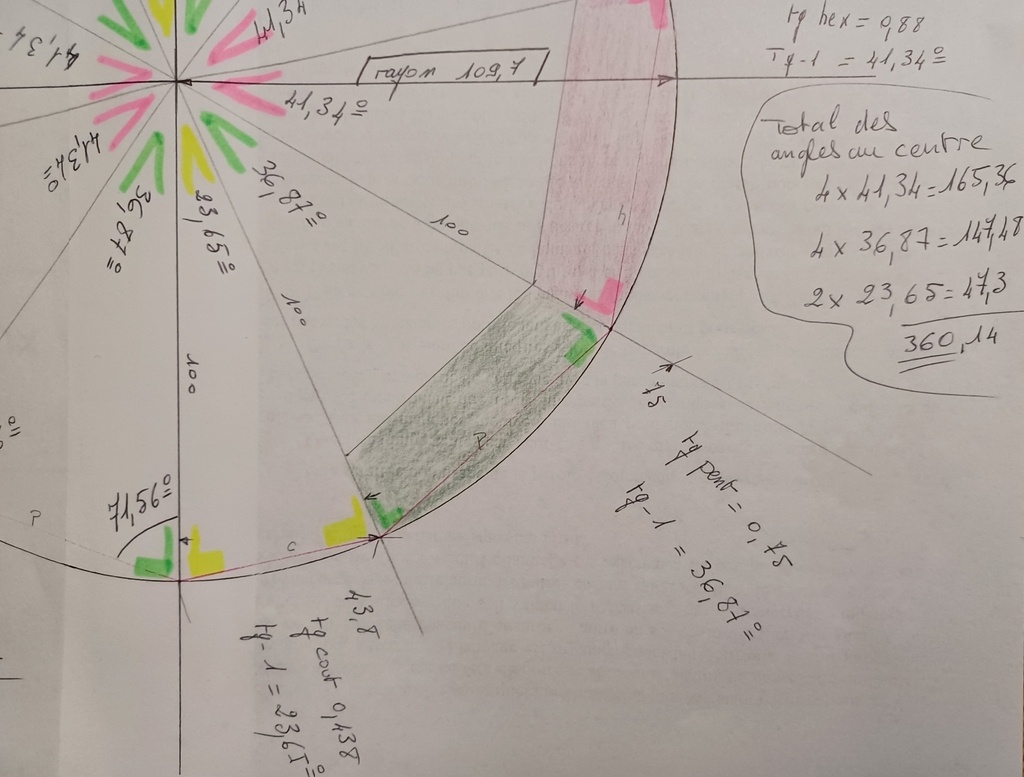 41,34
tg hex = 0,88
Tg-1 = 41,34º
41,34
rayon 109,7
41,34º
Total des
angles au centre
4 x 41,34 = 165,36
4 x 36,87 = 147,48
2 x 23,65 = 47,3
360,14
41,34º
36,87º
23,65º
36,87º
100
100
100
h
75
P
tg pent = 0,75
tg-1 = 36,87º
71,56º
P
c
43,8
tg cout 0,438
tg-1 = 23,65º